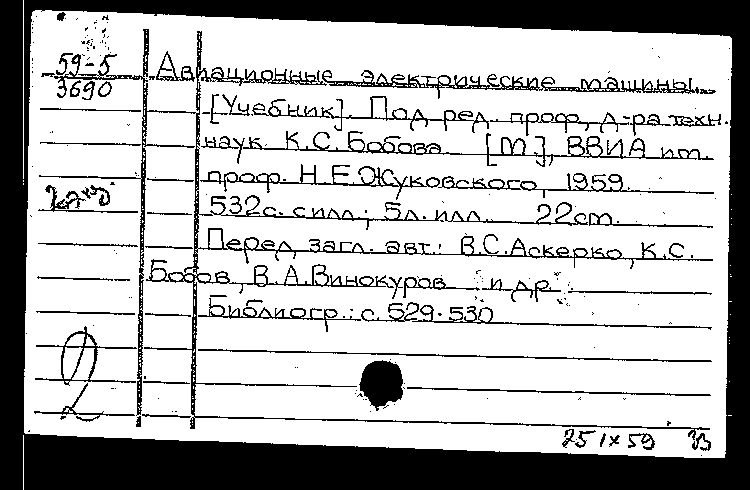 59-5
3690
Авиационные электрические машины.
[Учебник]. Под ред. проф., д-ра техн.
наук К.С. Бобова. [М], ВВИА им.
проф. Н.Е. Жуковского, 1959.
532с. с илл.; 5л. илл. 22cm.
Перед загл. авт.: В.С. Аскерко, К.С.
Бобов, В.А. Винокуров и др.
Библиогр.: с. 529-530
2
25 IX 59